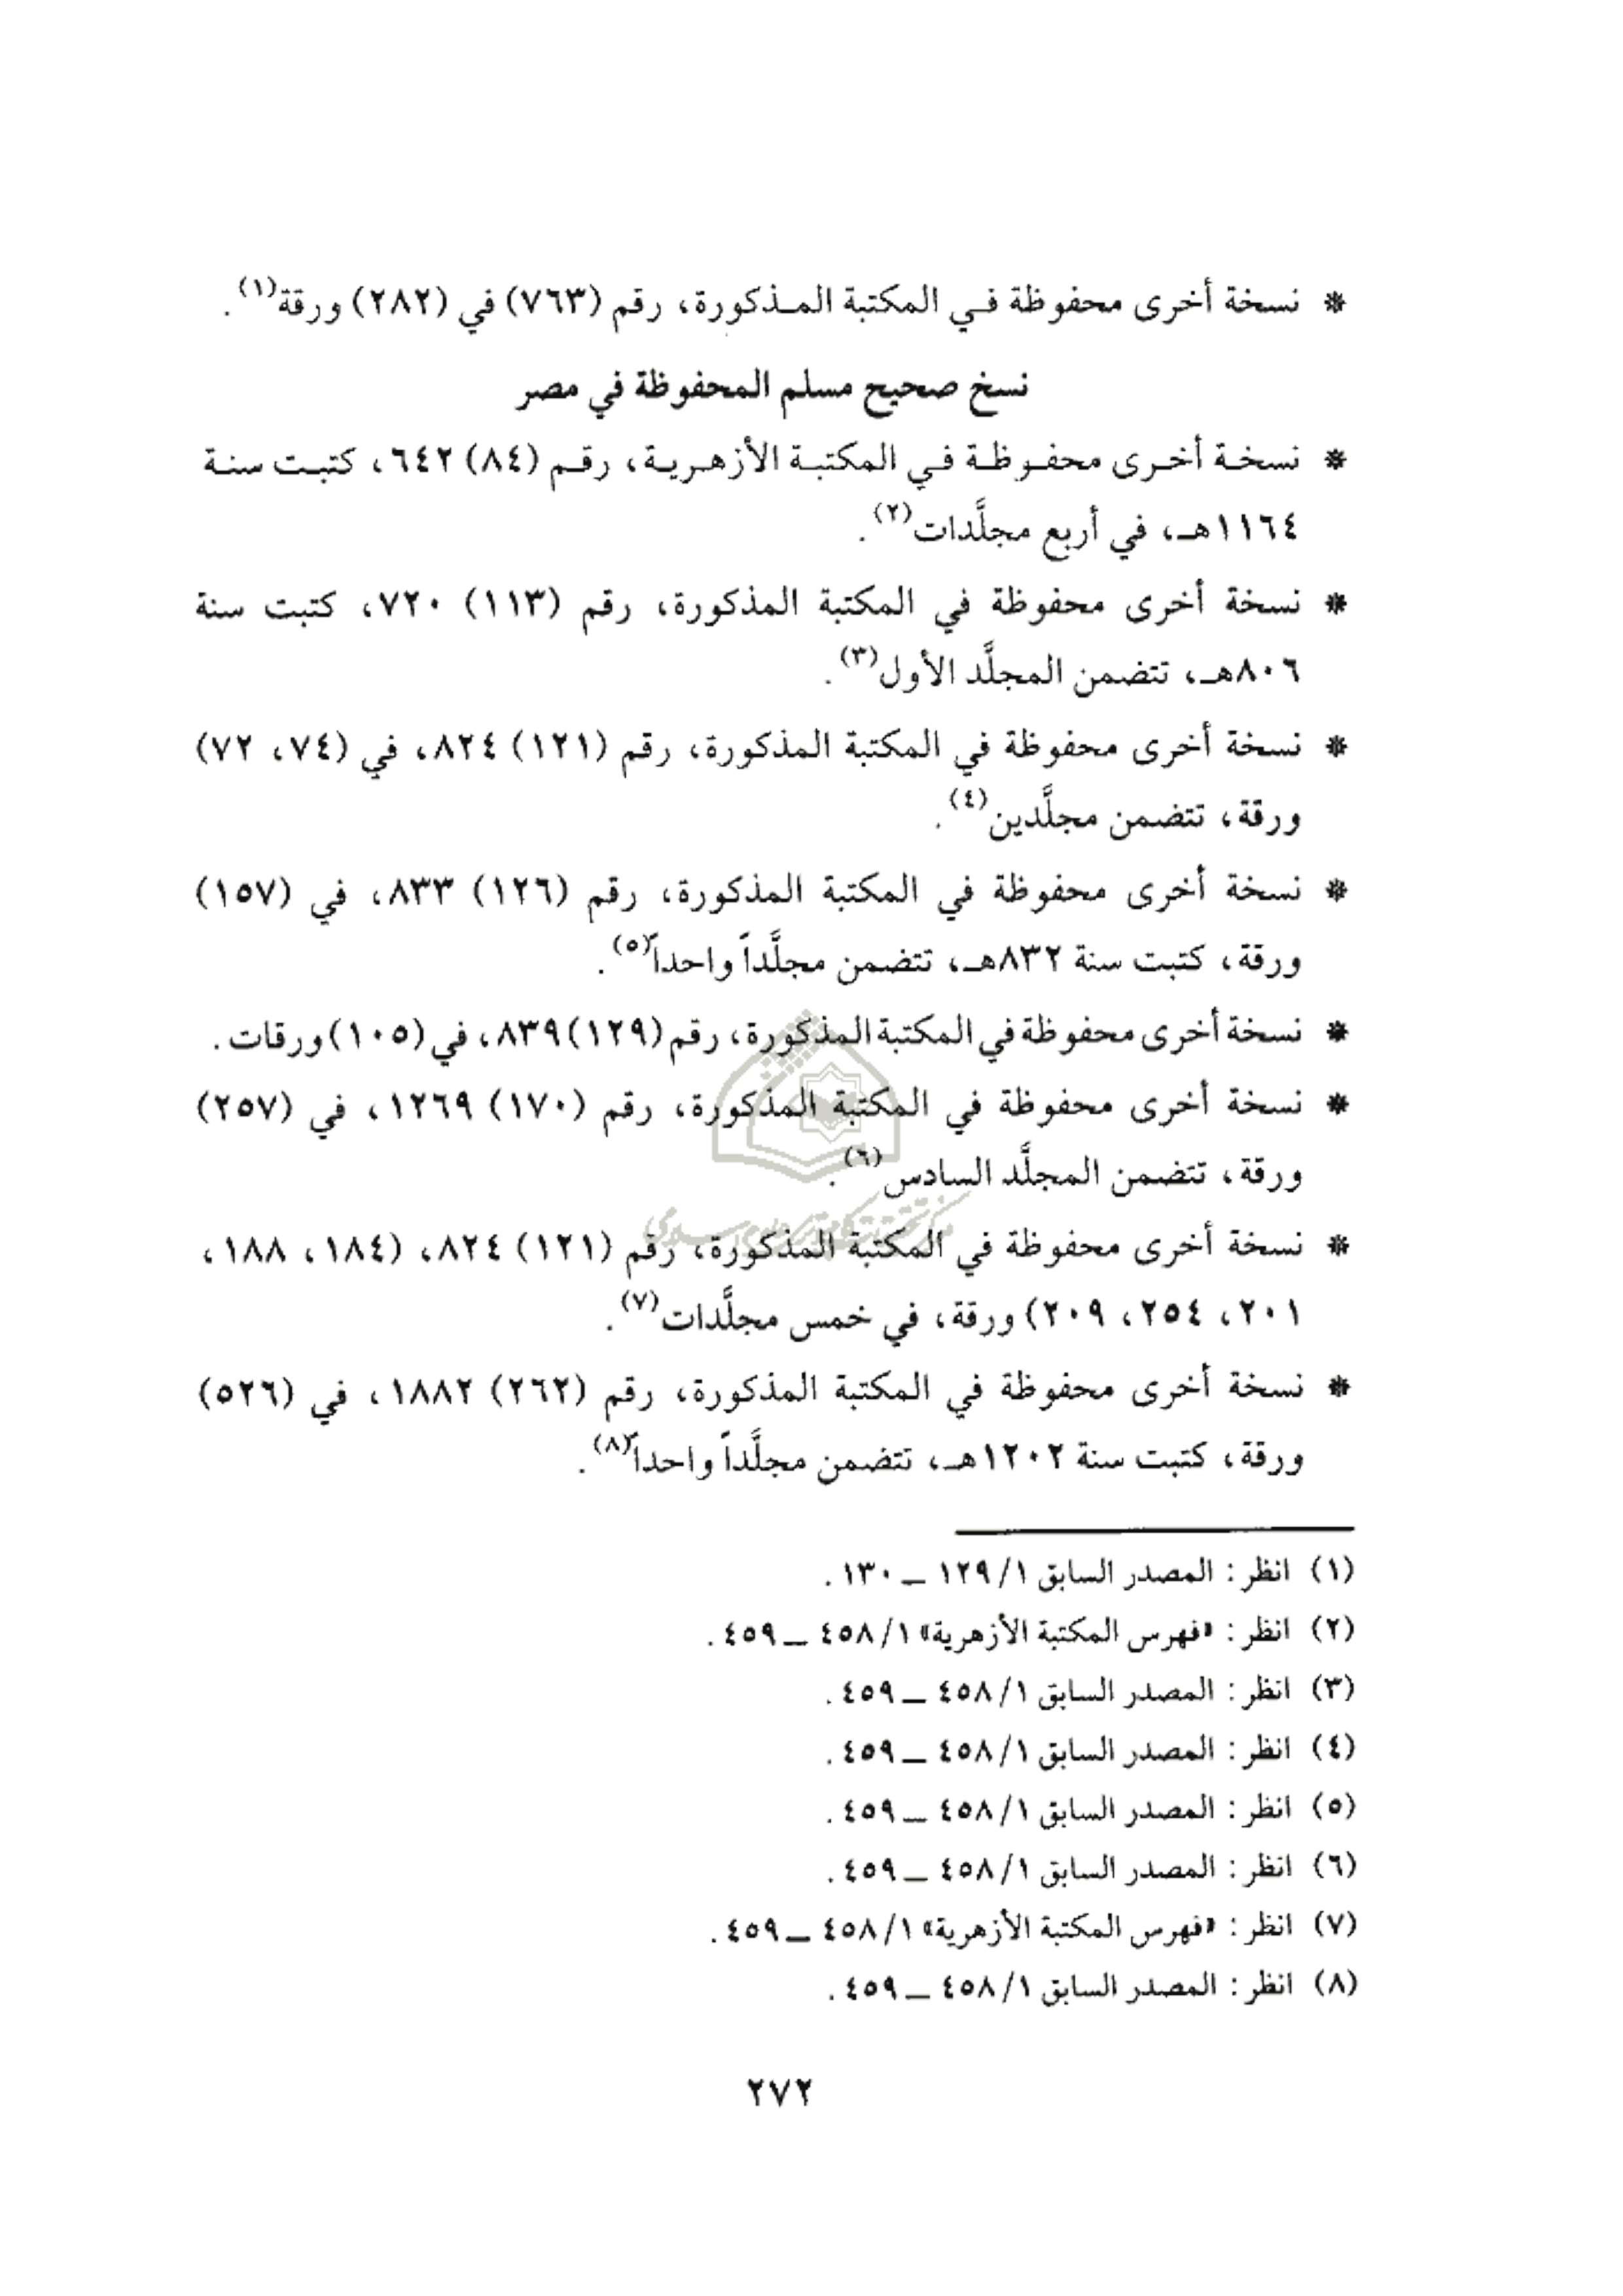 * نسخة أخرى محفوظة في المكتبة المذكورة، رقم (٧٦٣) في (٢٨٢) ورقة(١).
نسخ صحيح مسلم المحفوظة في مصر
* نسخة أخرى محفوظة في المكتبة الأزهرية، رقم (٨٤) ٦٤٢، كتبت سنة
١١٦٤هـ، في أربع مجلَّدات(٢).
* نسخة أخرى محفوظة في المكتبة المذكورة، رقم (١١٣) ٧٢٠، كتبت سنة
٨٠٦هـ، تتضمن المجلَّد الأول(٣).
* نسخة أخرى محفوظة في المكتبة المذكورة، رقم (١٢١) ٨٢٤، في (٧٤، ٧٢)
ورقة، تتضمن مجلَّدين(٤).
* نسخة أخرى محفوظة في المكتبة المذكورة، رقم (١٢٦) ٨٣٣، في (١٥٧)
ورقة، كتبت سنة ٨٣٢هـ، تتضمن مجلَّداً واحداً(٥).
* نسخة أخرى محفوظة في المكتبة المذكورة، رقم (١٢٩) ٨٣٩، في (١٠٥) ورقات.
* نسخة أخرى محفوظة في المكتبة المذكورة، رقم (١٧٠) ١٢٦٩، في (٢٥٧)
ورقة، تتضمن المجلَّد السادس(٦).
* نسخة أخرى محفوظة في المكتبة المذكورة، رقم (١٢١) ٨٢٤، (١٨٤، ١٨٨،
٢٠١، ٢٥٤، ٢٠٩) ورقة، في خمس مجلَّدات(٧).
* نسخة أخرى محفوظة في المكتبة المذكورة، رقم (٢٦٢) ١٨٨٢، في (٥٢٦)
ورقة، كتبت سنة ١٢٠٢هـ، تتضمن مجلَّداً واحداً(٨).
(١) انظر: المصدر السابق ١/ ١٢٩ ــ ١٣٠.
(٢) انظر: «فهرس المكتبة الأزهرية» ١/ ٤٥٨ ــ ٤٥٩.
(٣) انظر: المصدر السابق ١/ ٤٥٨ ــ ٤٥٩.
(٤) انظر: المصدر السابق ١/ ٤٥٨ ــ ٤٥٩.
(٥) انظر: المصدر السابق ١/ ٤٥٨ ــ ٤٥٩.
(٦) انظر: المصدر السابق ١/ ٤٥٨ ــ ٤٥٩.
(٧) انظر: «فهرس المكتبة الأزهرية» ١/ ٤٥٨ ــ ٤٥٩.
(٨) انظر: المصدر السابق ١/ ٤٥٨ ــ ٤٥٩.
٢٧٢